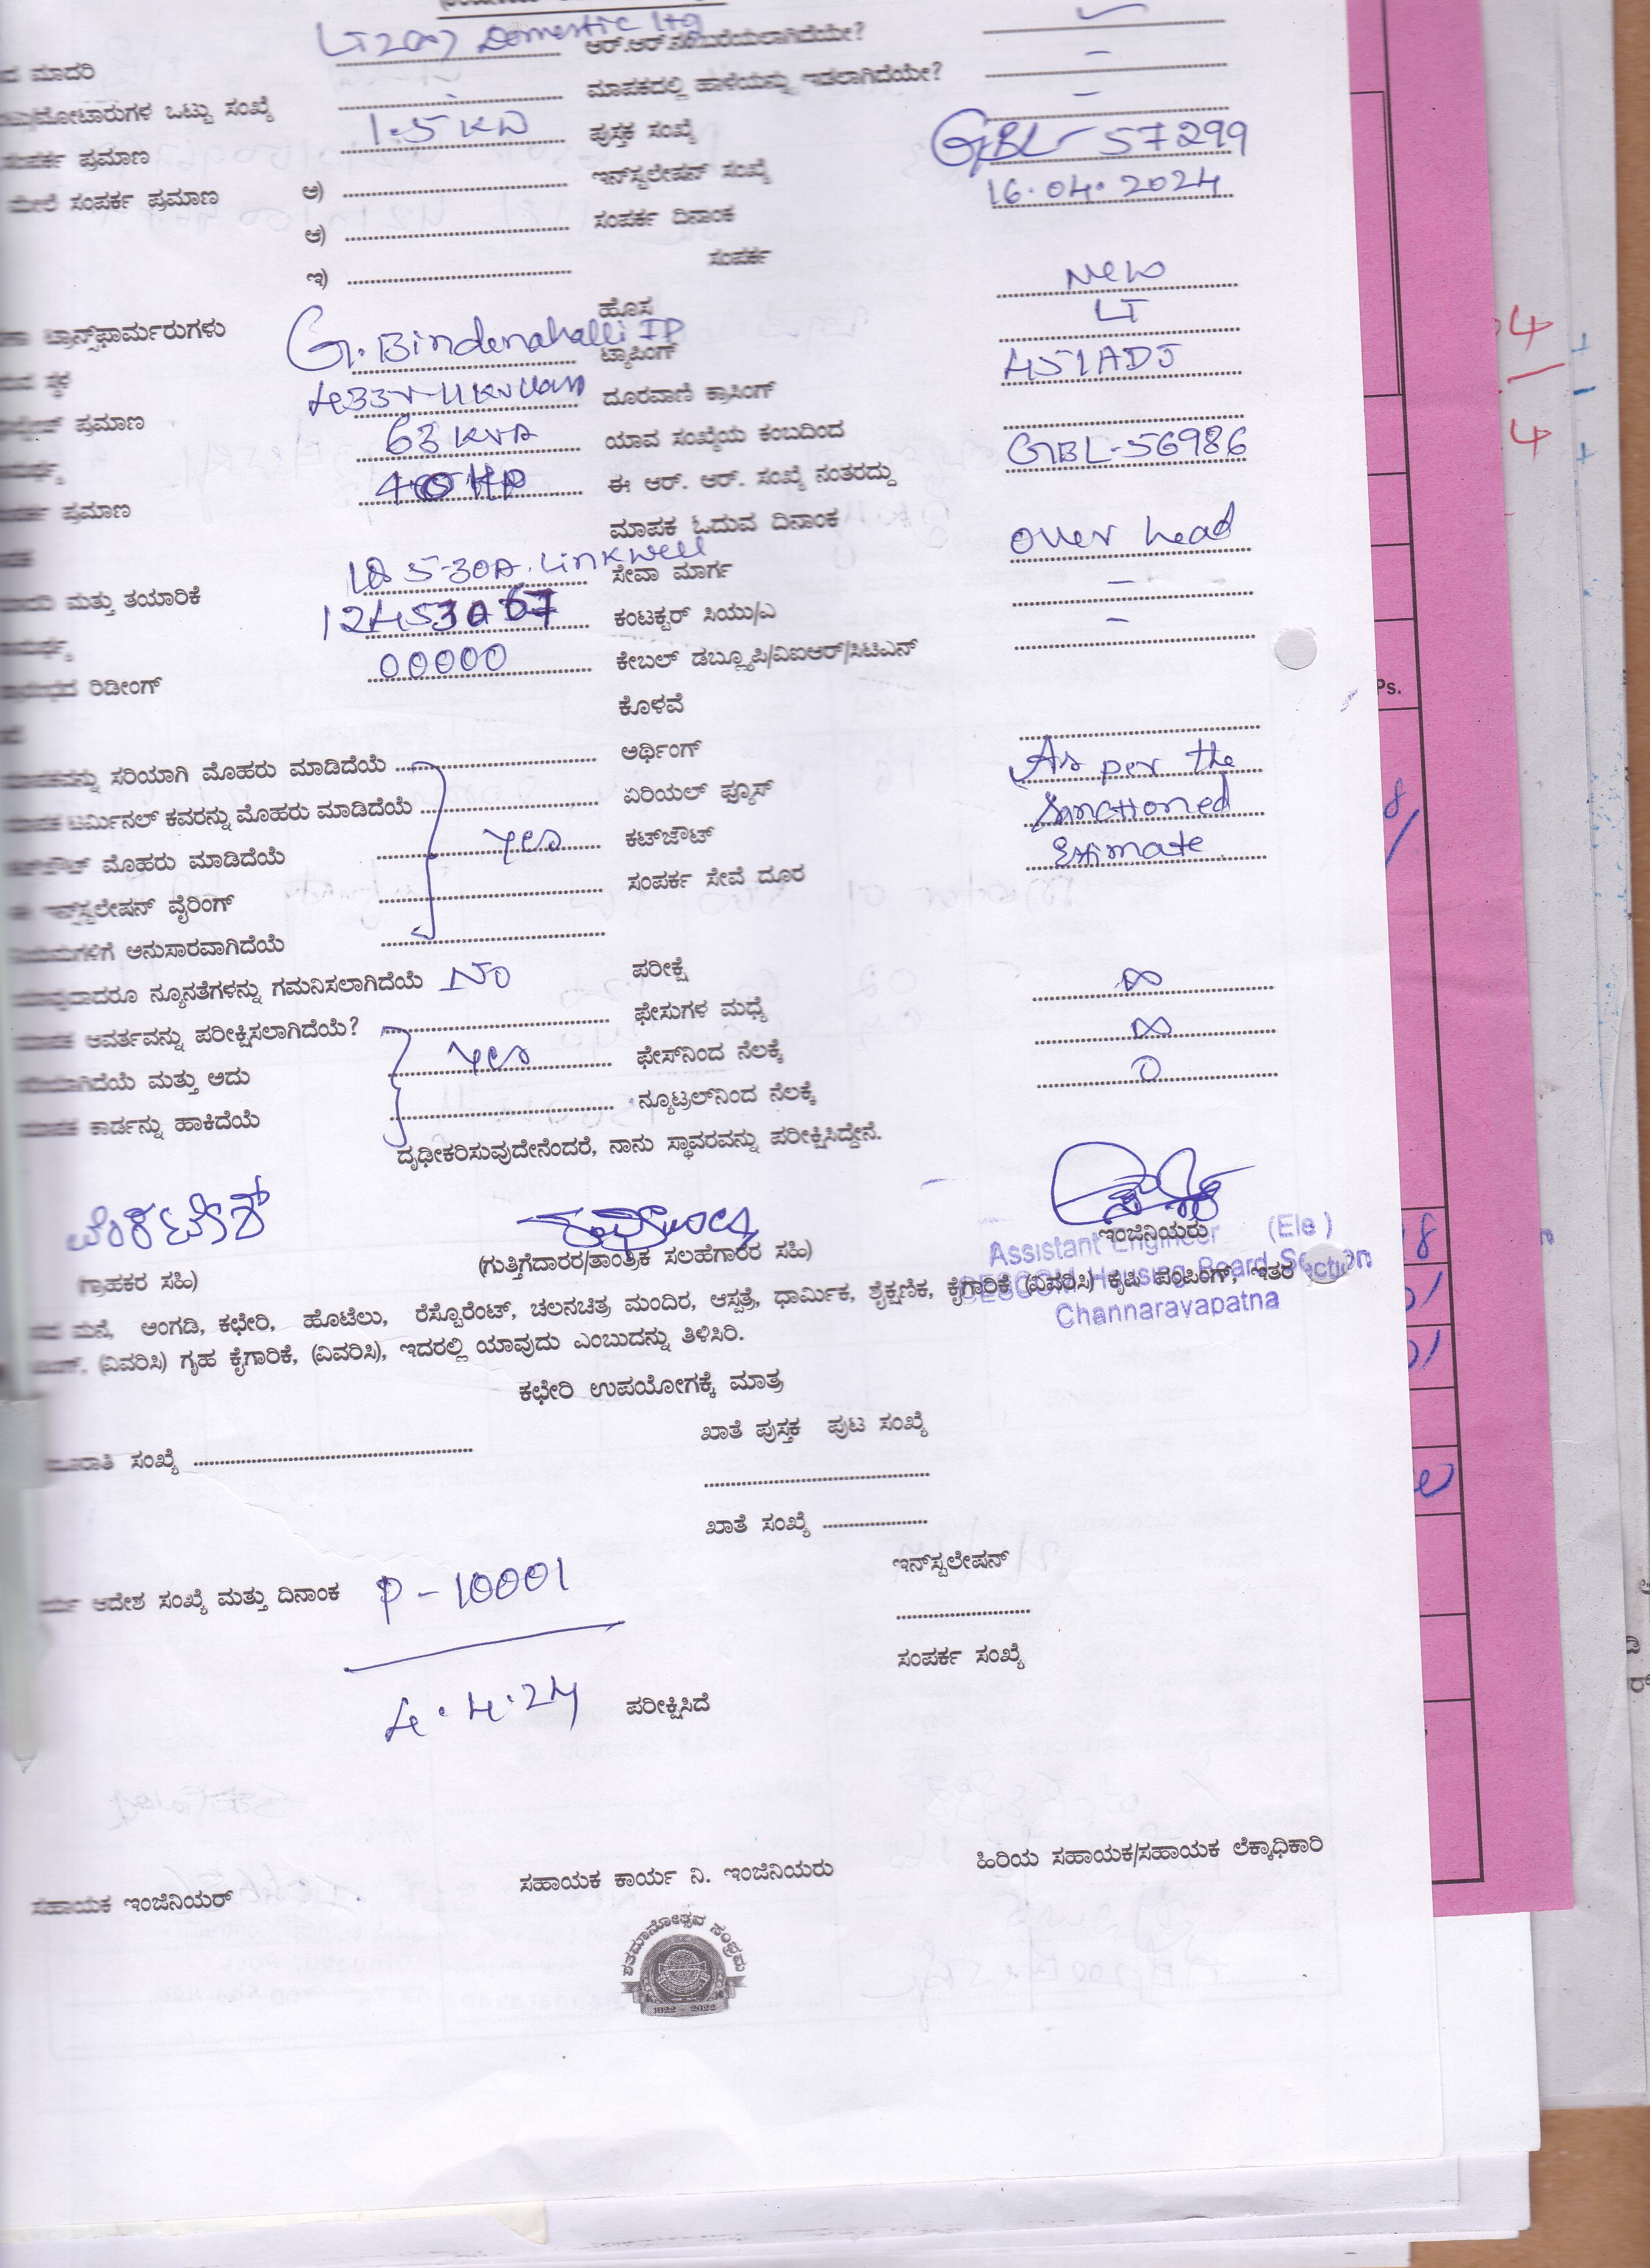 Domestic ltg
ಮಾದರಿ ಆರ್.ಆರ್.ನಂ.ಬರೆಯಲಾಗಿದೆಯೇ?
ಮೋಟಾರುಗಳ ಒಟ್ಟು ಸಂಖ್ಯೆ ಮಾಪಕದಲ್ಲಿ ಹಾಳೆಯನ್ನು ಇಡಲಾಗಿದೆಯೇ? –
ಸಂಪರ್ಕ ಪ್ರಮಾಣ 1.5 KW ಪುಸ್ತಕ ಸಂಖ್ಯೆ –
ಮೇಲೆ ಸಂಪರ್ಕ ಪ್ರಮಾಣ ಅ) ಇನ್‌ಸ್ಟಲೇಷನ್ ಸಂಖ್ಯೆ GBL- 57299
ಆ) ಸಂಪರ್ಕ ದಿನಾಂಕ 16.04.2024
ಇ) ಸಂಪರ್ಕ
ಟ್ರಾನ್ಸ್‌ಫಾರ್ಮರುಗಳು ಹೊಸ New
ಸ್ಥಳ G. Bindenahalli IP ಟ್ಯಾಪಿಂಗ್ LT
ಪ್ರಮಾಣ ದೂರವಾಣಿ ಕ್ರಾಸಿಂಗ್ 451ADJ
63 KVA ಯಾವ ಸಂಖ್ಯೆಯ ಕಂಬದಿಂದ
ಪ್ರಮಾಣ 40 HP ಈ ಆರ್. ಆರ್. ಸಂಖ್ಯೆ ನಂತರದ್ದು GBL-56986
ಮಾಪಕ ಓದುವ ದಿನಾಂಕ
ಮತ್ತು ತಯಾರಿಕೆ 5-30A. Linkwell ಸೇವಾ ಮಾರ್ಗ over head
ಕಂಟಕ್ಟರ್ ಸಿಯು/ಎ –
ರಿಡೀಂಗ್ 00000 ಕೇಬಲ್ ಡಬ್ಲ್ಯೂಪಿ/ವಿಐಆರ್/ಸಿಟಿಎನ್ –
ಕೊಳವೆ
ಸರಿಯಾಗಿ ಮೊಹರು ಮಾಡಿದೆಯೆ ಅರ್ಥಿಂಗ್ As per the
ಟರ್ಮಿನಲ್ ಕವರನ್ನು ಮೊಹರು ಮಾಡಿದೆಯೆ ಏರಿಯಲ್ ಫ್ಯೂಸ್ Sanctioned
ಮೊಹರು ಮಾಡಿದೆಯೆ Yes ಕಟ್‌ಔಟ್ Estimate
ಇನ್‌ಸ್ಟಲೇಷನ್ ವೈರಿಂಗ್ ಸಂಪರ್ಕ ಸೇವೆ ದೂರ
ಅನುಸಾರವಾಗಿದೆಯೆ
ನ್ಯೂನತೆಗಳನ್ನು ಗಮನಿಸಲಾಗಿದೆಯೆ No ಪರೀಕ್ಷೆ
ಆವರ್ತವನ್ನು ಪರೀಕ್ಷಿಸಲಾಗಿದೆಯೆ? ಫೇಸುಗಳ ಮಧ್ಯೆ ∞
ಮತ್ತು ಅದು Yes ಫೇಸ್‌ನಿಂದ ನೆಲಕ್ಕೆ ∞
ಕಾರ್ಡನ್ನು ಹಾಕಿದೆಯೆ ನ್ಯೂಟ್ರಲ್‌ನಿಂದ ನೆಲಕ್ಕೆ 0
ದೃಢೀಕರಿಸುವುದೇನೆಂದರೆ, ನಾನು ಸ್ಥಾವರವನ್ನು ಪರೀಕ್ಷಿಸಿದ್ದೇನೆ.
ವೆಂಕಟೇಶ್
(ಗ್ರಾಹಕರ ಸಹಿ) (ಗುತ್ತಿಗೆದಾರರ/ತಾಂತ್ರಿಕ ಸಲಹೆಗಾರರ ಸಹಿ) ಇಂಜಿನಿಯರು
Assistant Engineer (Ele)
CESCOM Housing Board Section
Channarayapatna
ಮನೆ, ಅಂಗಡಿ, ಕಛೇರಿ, ಹೊಟೆಲು, ರೆಸ್ಟೊರೆಂಟ್, ಚಲನಚಿತ್ರ ಮಂದಿರ, ಆಸ್ಪತ್ರೆ, ಧಾರ್ಮಿಕ, ಶೈಕ್ಷಣಿಕ, ಕೈಗಾರಿಕೆ (ವಿವರಿಸಿ) ಕೃಷಿ ಪಂಪಿಂಗ್, ಇತರೆ
(ವಿವರಿಸಿ) ಗೃಹ ಕೈಗಾರಿಕೆ, (ವಿವರಿಸಿ), ಇದರಲ್ಲಿ ಯಾವುದು ಎಂಬುದನ್ನು ತಿಳಿಸಿರಿ.
ಕಛೇರಿ ಉಪಯೋಗಕ್ಕೆ ಮಾತ್ರ
ಸಂಖ್ಯೆ ಖಾತೆ ಪುಸ್ತಕ ಪುಟ ಸಂಖ್ಯೆ
ಖಾತೆ ಸಂಖ್ಯೆ
ಇನ್‌ಸ್ಟಲೇಷನ್
ಆದೇಶ ಸಂಖ್ಯೆ ಮತ್ತು ದಿನಾಂಕ P - 10001
ಸಂಪರ್ಕ ಸಂಖ್ಯೆ
4.4.24 ಪರೀಕ್ಷಿಸಿದೆ
ಸಹಾಯಕ ಇಂಜಿನಿಯರ್ ಸಹಾಯಕ ಕಾರ್ಯ ನಿ. ಇಂಜಿನಿಯರು ಹಿರಿಯ ಸಹಾಯಕ/ಸಹಾಯಕ ಲೆಕ್ಕಾಧಿಕಾರಿ
ಶತಮಾನೋತ್ಸವ ಸಂಭ್ರಮ
1922 - 2022
Ps.